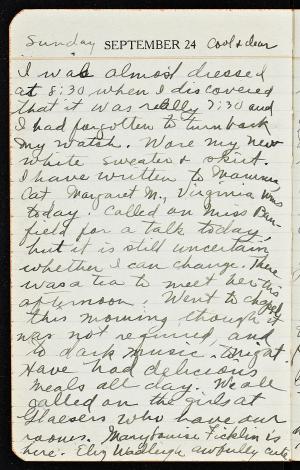 Sunday SEPTEMBER 24 Cool & clear
I was almost dressed
at 8:30 when I discovered
that it was really 7:30 and
I had forgotten to turn back
my watch. Wore my new
white sweater & skirt.
I have written to Mamma,
Cat, Margaret M., Virginia
today. Called on Miss Ban-
field for a talk today,
but it is still uncertain
whether I can change. There
was a tea to meet her this
afternoon. Went to chapel
this morning though it
was not required and
to dark music tonight
Have had delicious
meals all day. We all
called on the girls at
Glaesers who have our
rooms. Mary Louise Ficklin is
here. Eliz Wadleigh awfully cute